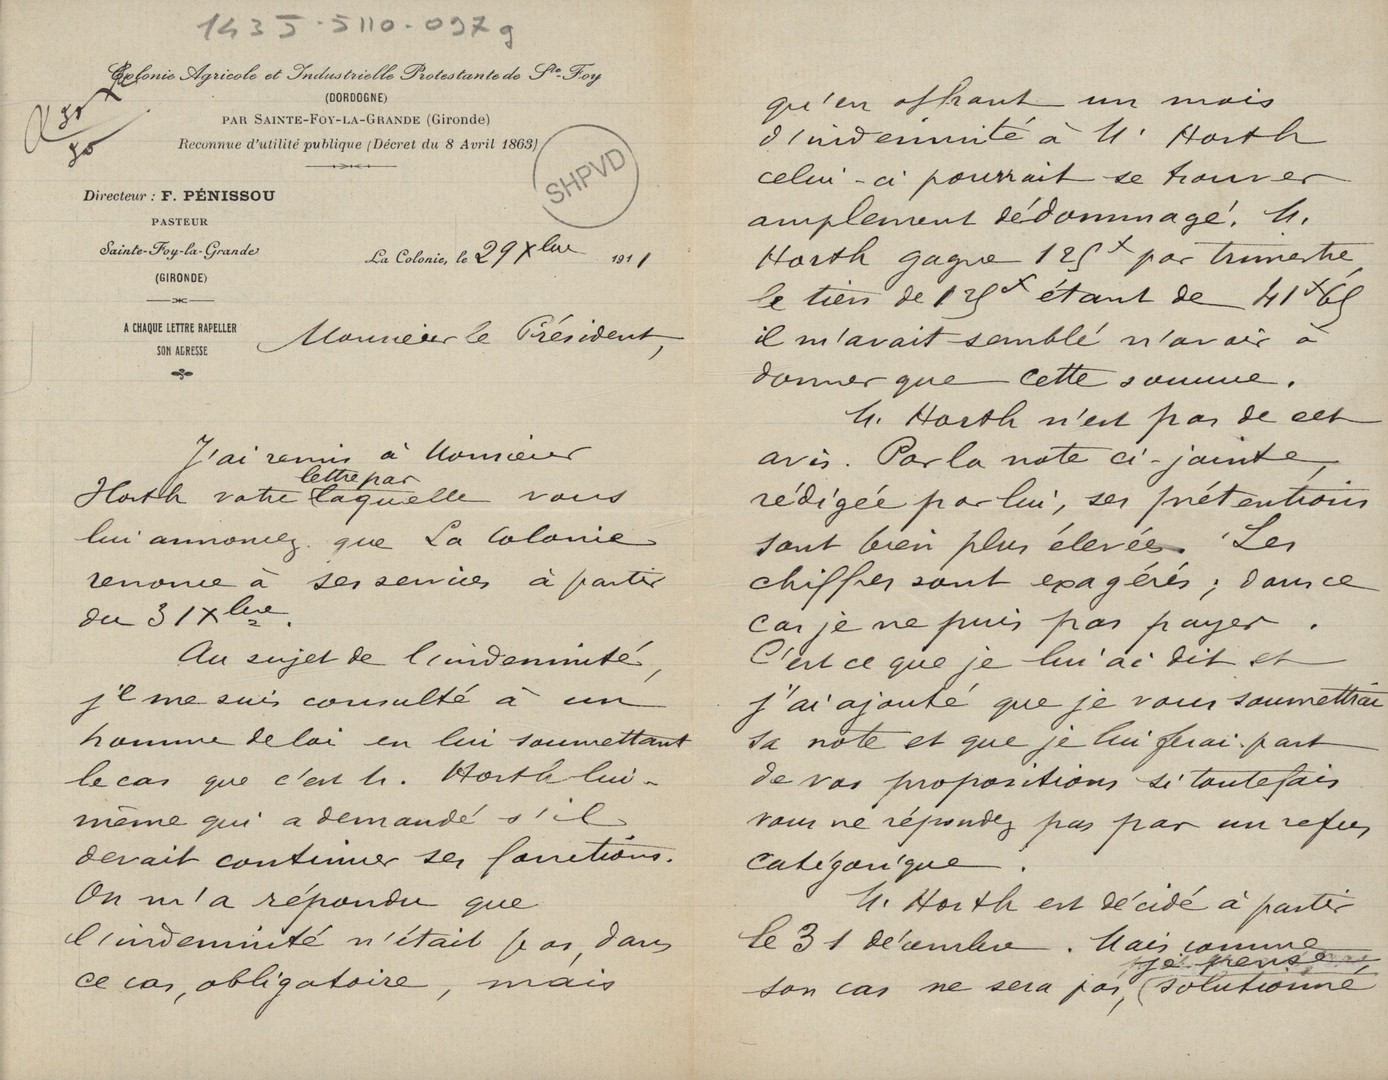 143J-5110-097g
Colonie Agricole et Industrielle Protestante de Ste-Foy
(DORDOGNE)
PAR SAINTE-FOY-LA-GRANDE (Gironde)
Reconnue d'utilité publique (Décret du 8 Avril 1863)
SHPVD
Directeur : F. PÉNISSOU
PASTEUR
Sainte-Foy-la-Grande
(GIRONDE)
A CHAQUE LETTRE RAPELLER
SON ADRESSE
La Colonie, le 29 Xbre 1911
Monsieur le Président,
J'ai remis à Monsieur
Horth votre lettre par laquelle vous
lui annoncez que La Colonie
renonce à ses services à partir
du 31 Xbre.
Au sujet de l'indemnité,
je me suis consulté à un
homme de loi en lui soumettant
le cas que c'est M. Horth lui-
même qui a demandé s'il
devait continuer ses fonctions.
On m'a répondu que
l'indemnité n'était pas, dans
ce cas, obligatoire, mais
qu'en offrant un mois
d'indemnité à M. Horth
celui-ci pourrait se trouver
amplement dédommagé. M.
Horth gagne 125 f par trimestre,
le tiers de 125 f étant de 41 f 65
il m'avait semblé n'avoir à
donner que cette somme.
M. Horth n'est pas de cet
avis. Par la note ci-jointe,
rédigée par lui, ses prétentions
sont bien plus élevées. Les
chiffres sont exagérés ; dans ce
cas je ne puis pas payer.
C'est ce que je lui ai dit et
j'ai ajouté que je vous soumettrai
sa note et que je lui ferai part
de vos propositions si toutefois
vous ne répondez pas par un refus
catégorique.
M. Horth est décidé à partir
le 31 décembre. Mais comme
son cas ne sera pas, je pense solutionné